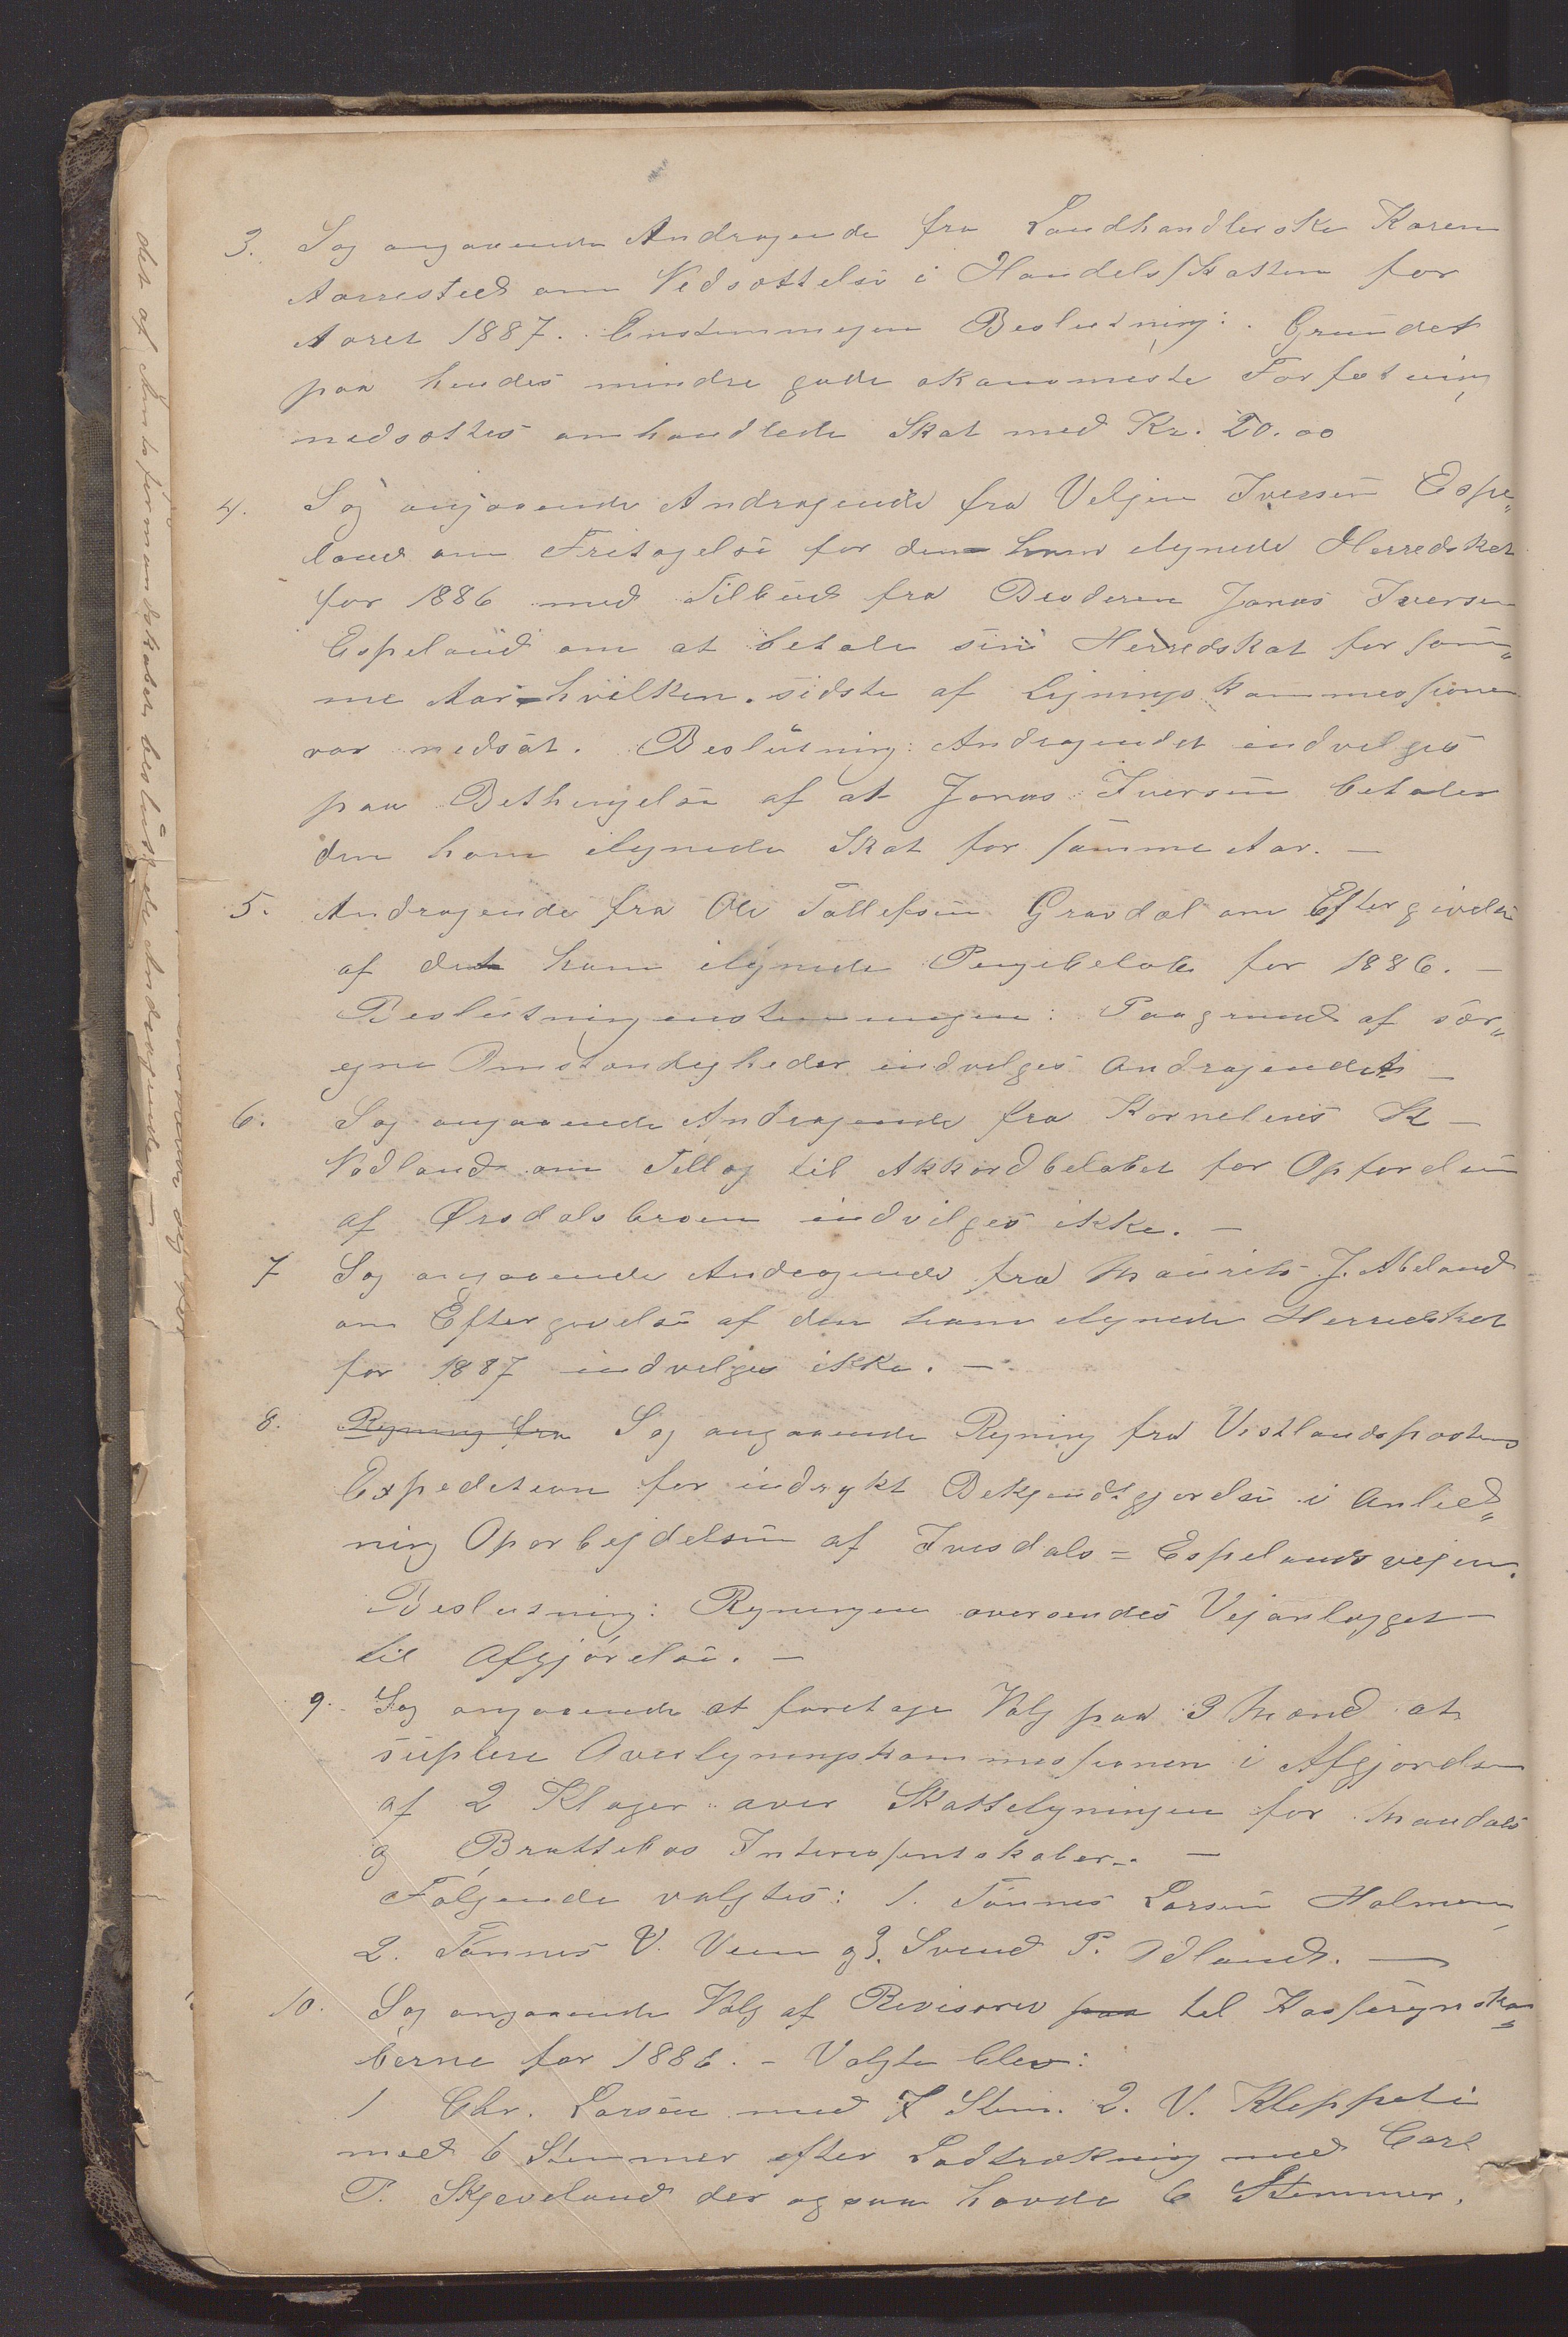 3. Sag angaaende Andragende fra Landhandlerske Karen
Aarrestad om Nedsættelse i Handelsskatten for
Aaret 1887. Enstemmigen Beslutning: Grundet
paa hendes mindre gode økonomiske Forfatning
nedsættes omhandlede Skat med Kr. 20.00
4. Sag angaaende Andragende fra Veljen Iversen Espe„
land om Fritagelse for den ham ilignede Herredskat
for 1886 med Tilbud fra Broderen Jonas Iversen
Espeland om at betale sin Herredskat for sam„
me Aar hvilken sidste af Ligningskommissionen
var nedsat. Beslutning: Andragendet indvilges
paa Bethingelse af at Jonas Iversen betaler
den ham ilignede Skat for samme Aar. —
5. Andragende fra Ole Tollefsen Gravdal om Eftergivelse
af det ham ilignede Pengebeløb for 1886. —
Beslutning enstemmigen: Paagrund af sær„
egne Omstændigheder indvilges Andragendet —
6. Sag angaaende Andragende fra Kornelius K —
Nodland om Tillæg til Akkordbeløbet for Opførelsen
af Ørsdalsbroen indvilges ikke. —
7 Sag angaaende Andragende fra Maurits J. Abeland
om Eftergivelse af den ham ilignede Herredskat
for 1887 indvilges ikke. —
8. Regning fra Sag angaaende Regning fra Vestlandspostens
Expedition for indrykt Bekjendtgjørelse i Anled„
ning Oparbejdelsen af Ivesdals = Espelandsvejen.
Beslutning: Regningen oversendes Vejanlægget —
til Afgjørelse. —
9. Sag angaaende at foretage Valg paa 3 Mænd at
suplere Overligningskommissionen i Afgjørelsen
af 2 Klager over Skatteligningen for Maudals
og Brattebøs Interessentskaber. —
Følgende valgtes: 1. Tønnes Larsen Holmen,
2. Tønnes V. Veen og 3. Svend P. Ødland. —
10. Sag angaaende Valg af Revisorer paa til Kasseregnska„
berne for 1886. – Valgte blev:
1 Chr. Larsen med 7 Stem. 2. V. Kleppeli
med 6 Stemmer efter Lodtrækning med Carl
P. Skjeveland der ogsaa havde 6 Stemmer.
det af Amtsformandskabet besluttede Andragende —